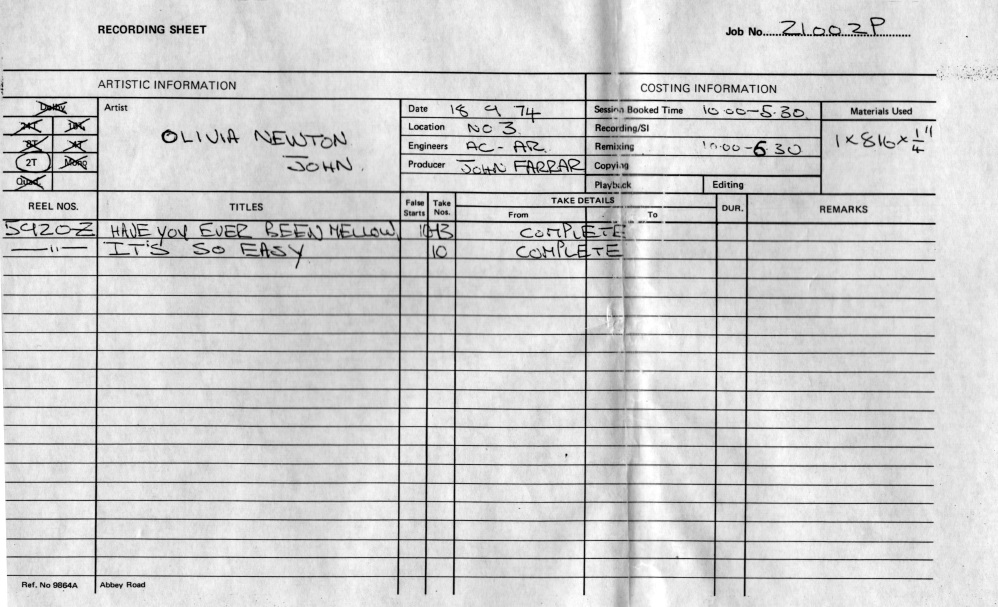 RECORDING SHEET
Job No. 21002P
ARTISTIC INFORMATION
COSTING INFORMATION
Dolby
24T 16T
8T 4T
2T Mono
Quad.
Artist
OLIVIA NEWTON
JOHN.
Date 18 9 74
Location NO 3.
Engineers AC - AR.
Producer JOHN FARRAR
Session Booked Time 10.00-5.30.
Recording/SI
Remixing 10.00-6 30
Copying
Playback Editing
Materials Used
1 x 816 x 1/4"
REEL NOS. TITLES False Starts Take Nos. TAKE DETAILS From To DUR. REMARKS
5920-Z HAVE YOU EVER BEEN MELLOW, COMPLETE
—"— IT'S SO EASY 10 COMPLETE
Ref. No 9864A Abbey Road